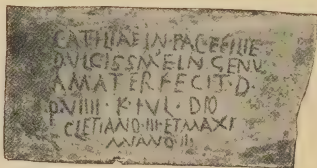 CATILIAE IN·PACE FILIE
DVLCISSME INGENV
A MATER FECIT·D·
P·VIIII·K·IVL·DIO
CLETIANO·III·ET MAXI
MIANO·II·